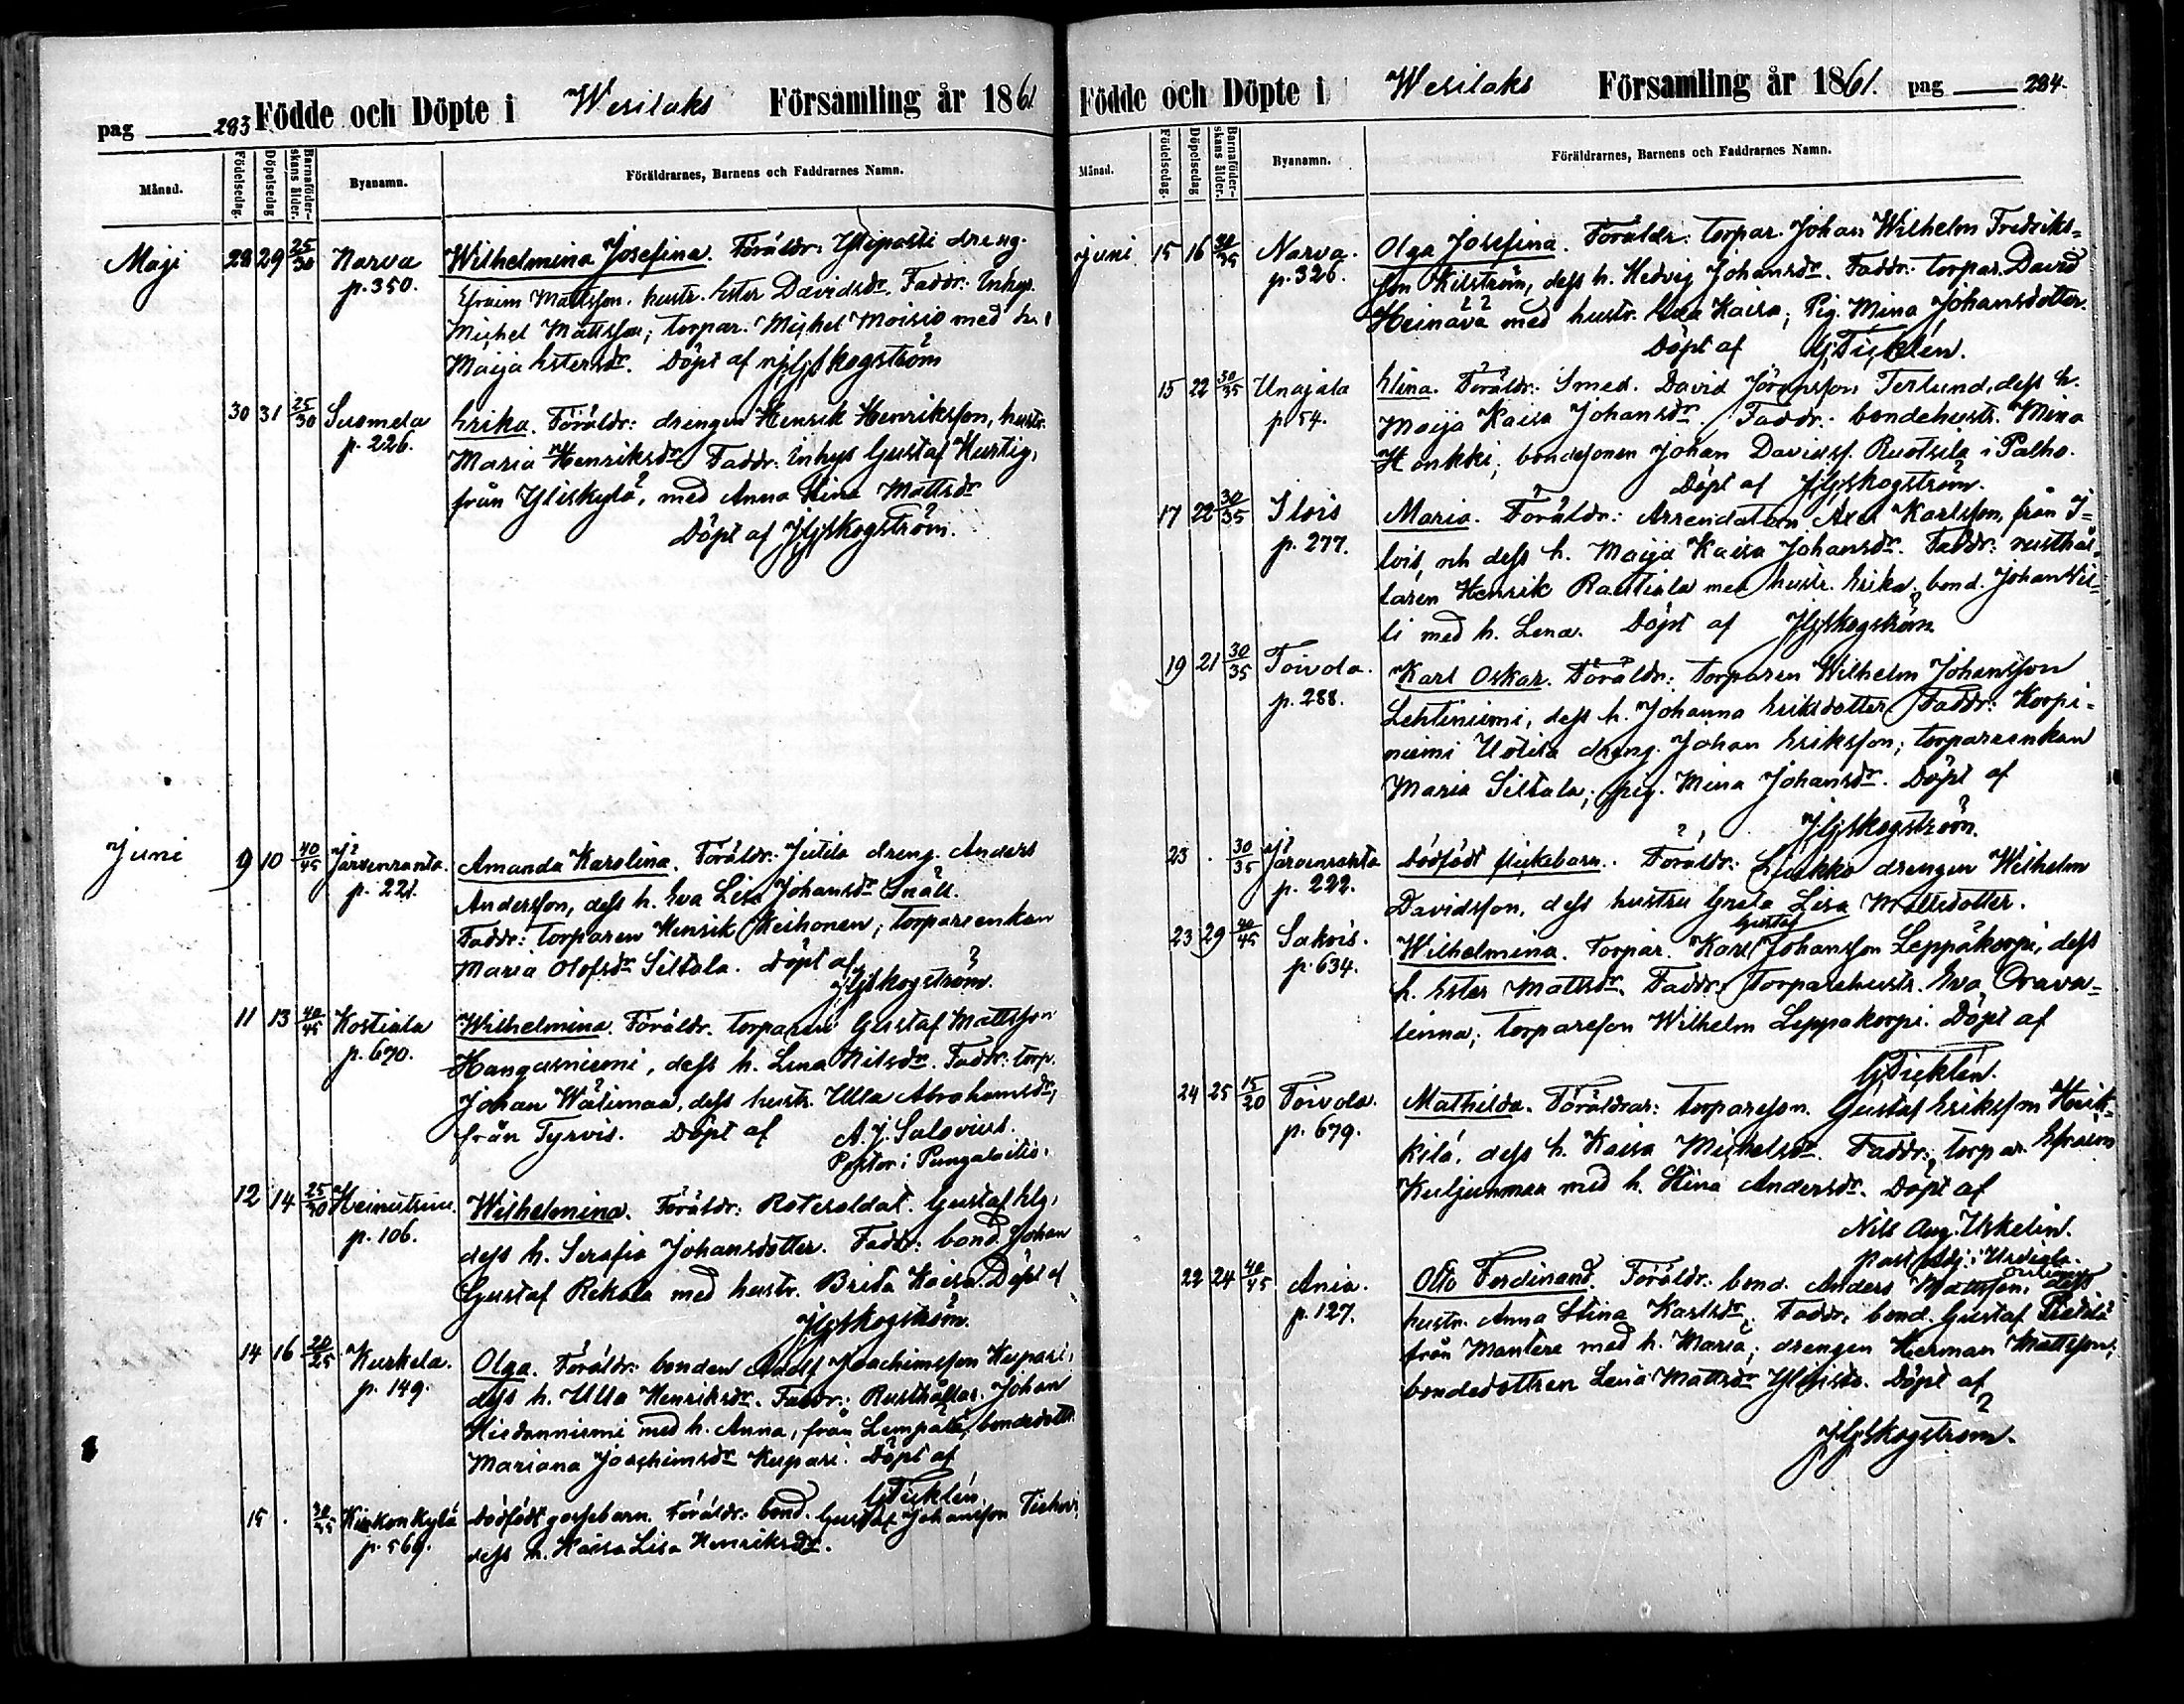 pag 283 Födde och Döpte i Wesilaks Församling år 1861
Månad. Födelsedag. Döpelsedag Barnaföderskans ålder. Byanamn. Föräldrarnes, Barnens och Faddrarnes Namn.
Maji 28 29 25/30 Narva Wilhelmina Josefina. Föräldr: Yliposti dreng.
p. 350. Efraim Mattsson. hustr. Ester Davidsdr. Faddr: Inhys.
Michel Mattsson; torpar. Michel Moisio med h.
Maija Estersdr. Döpt af Skogström
30 31 25/30 Suomela Erika. Föräldr: drengen Henrik Henriksson, hustr.
p. 226. Maria Henriksdr. Faddr: Inhys Gustaf Hurtig,
från Yliskylä, med Anna Stina Mattsdr
Döpt af Skogström.
Juni 9 10 40/45 Järvenranta. Amanda Karolina. Föräldr: Jutila dreng. Anders
p. 221. Andersson, dess h. Eva Lisa Johansdr Snäll.
Faddr: torparen Henrik Keihonen; torpareenkan
Maria Olofsdr Siltala. Döpt af
Skogström.
11 13 40/45 Kostiala Wilhelmina. Föräldr. torparen Gustaf Mattsson
p. 670. Hangasniemi, dess h. Lena Nilsdr. Faddr: torp.
Johan Wälimaa, dess hustr. Ulla Abrahamsdr,
från Tyrvis. Döpt af A. J. Salovius.
Pastor i Pungalaitio.
12 14 25/30 Wilhelmina. Föräldr: Rotesoldat. Gustaf Elg,
p. 106. dess h. Serafia Johansdotter. Faddr: bond. Johan
Gustaf Rekola med hustr. Brita Kaisa. Döpt af
Skogström.
14 16 20/25 Kurkela. Olga. Föräldr: bonden Adolf Joachimsson Kuppari,
p. 149. dess h. Ulla Henriksdr. Faddr: Rusthållar. Johan
Hiedanniemi med h. Anna, från Lempälä, bondedottr.
Mariana Joachimsdr Kuppari. Döpt af
G Ticklén.
15 . 30/35 Kirkonkylä Dödfödt gossebarn. Föräldr: bond. Gustaf Johansson
p. 569. dess h. Kaisa Lisa Henriksdr.
Födde och Döpte i Wesilaks Församling år 1861. pag 284.
Månad. Födelsedag. Döpelsedag Barnaföderskans ålder. Byanamn. Föräldrarnes, Barnens och Faddrarnes Namn.
Juni 15 16 30/35 Narva. Olga Josefina. Föräldr: torpar. Johan Wilhelm Fredriks-
p. 326. son Kilström, dess h. Hedvig Johansdr. Faddr: torpar. David
Heinävä med hustr. Eva Kaisa; Pig. Mina Johansdotter.
Döpt af G Ticklén.
15 22 30/35 Unajala Elina. Föräldr: Smed. David Jöransson Terlund, dess h.
p. 54. Maija Kaisa Johansdr. Faddr: bondehustr. Mina
Honkki; bondesonen Johan Davidss. Ruotsila i Palho.
Döpt af Skogström.
17 22 30/35 Ilois Maria. Föräldr: Arrendatorn Axel Karlsson, från I-
p. 277. lois, och dess h. Maija Kaisa Johansdr. Faddr: rusthål-
laren Henrik Rautiala med hustr. Erika; bond. Johan
li med h. Lena. Döpt af Skogström
19 21 30/35 Toivola. Karl Oskar. Föräldr: torparen Wilhelm Johansson
p. 288. Lehtiniemi, dess h. Johanna Eriksdotter. Faddr: Korpi-
niemi Uotila dreng. Johan Eriksson; torpareenkan
Maria Siltala; pig. Mina Johansdr. Döpt af
Skogström.
23 . 30/35 Järvenranta Dödfödt flickebarn. Föräldr: drengen Wilhelm
p. 222. Davidsson, dess hustru Greta Lisa Mattsdotter.
Gustaf
23 29 40/45 Sakois. Wilhelmina. Torpar. Karl Johansson Leppäkorpi, dess
p. 634. h. Ester Mattsdr. Faddr: Torparehustr. Eva Orava-
linna; torpareson Wilhelm Leppäkorpi. Döpt af
G Ticklén.
24 25 15/20 Toivola. Mathilda. Föräldrar: torpareson. Gustaf Eriksson Heik-
p. 679. kilä, dess h. Kaisa Michelsdr. Faddr: torpar. Efraim
Kuljunmaa med h. Stina Andersdr. Döpt af
Nils Aug. Urkelin.
past. adj. i Urdiala.
22 24 40/45 Ania. Otto Ferdinand. Föräldr: bond. Anders Mattsson, dess
p. 127. hustr. Anna Stina Karlsdr. Faddr. bond. Gustaf
från Mantere med h. Maria; drengen Herman Mattsson;
bondedottren Lena Mattsdr Ylöisto. Döpt af
Skogström.